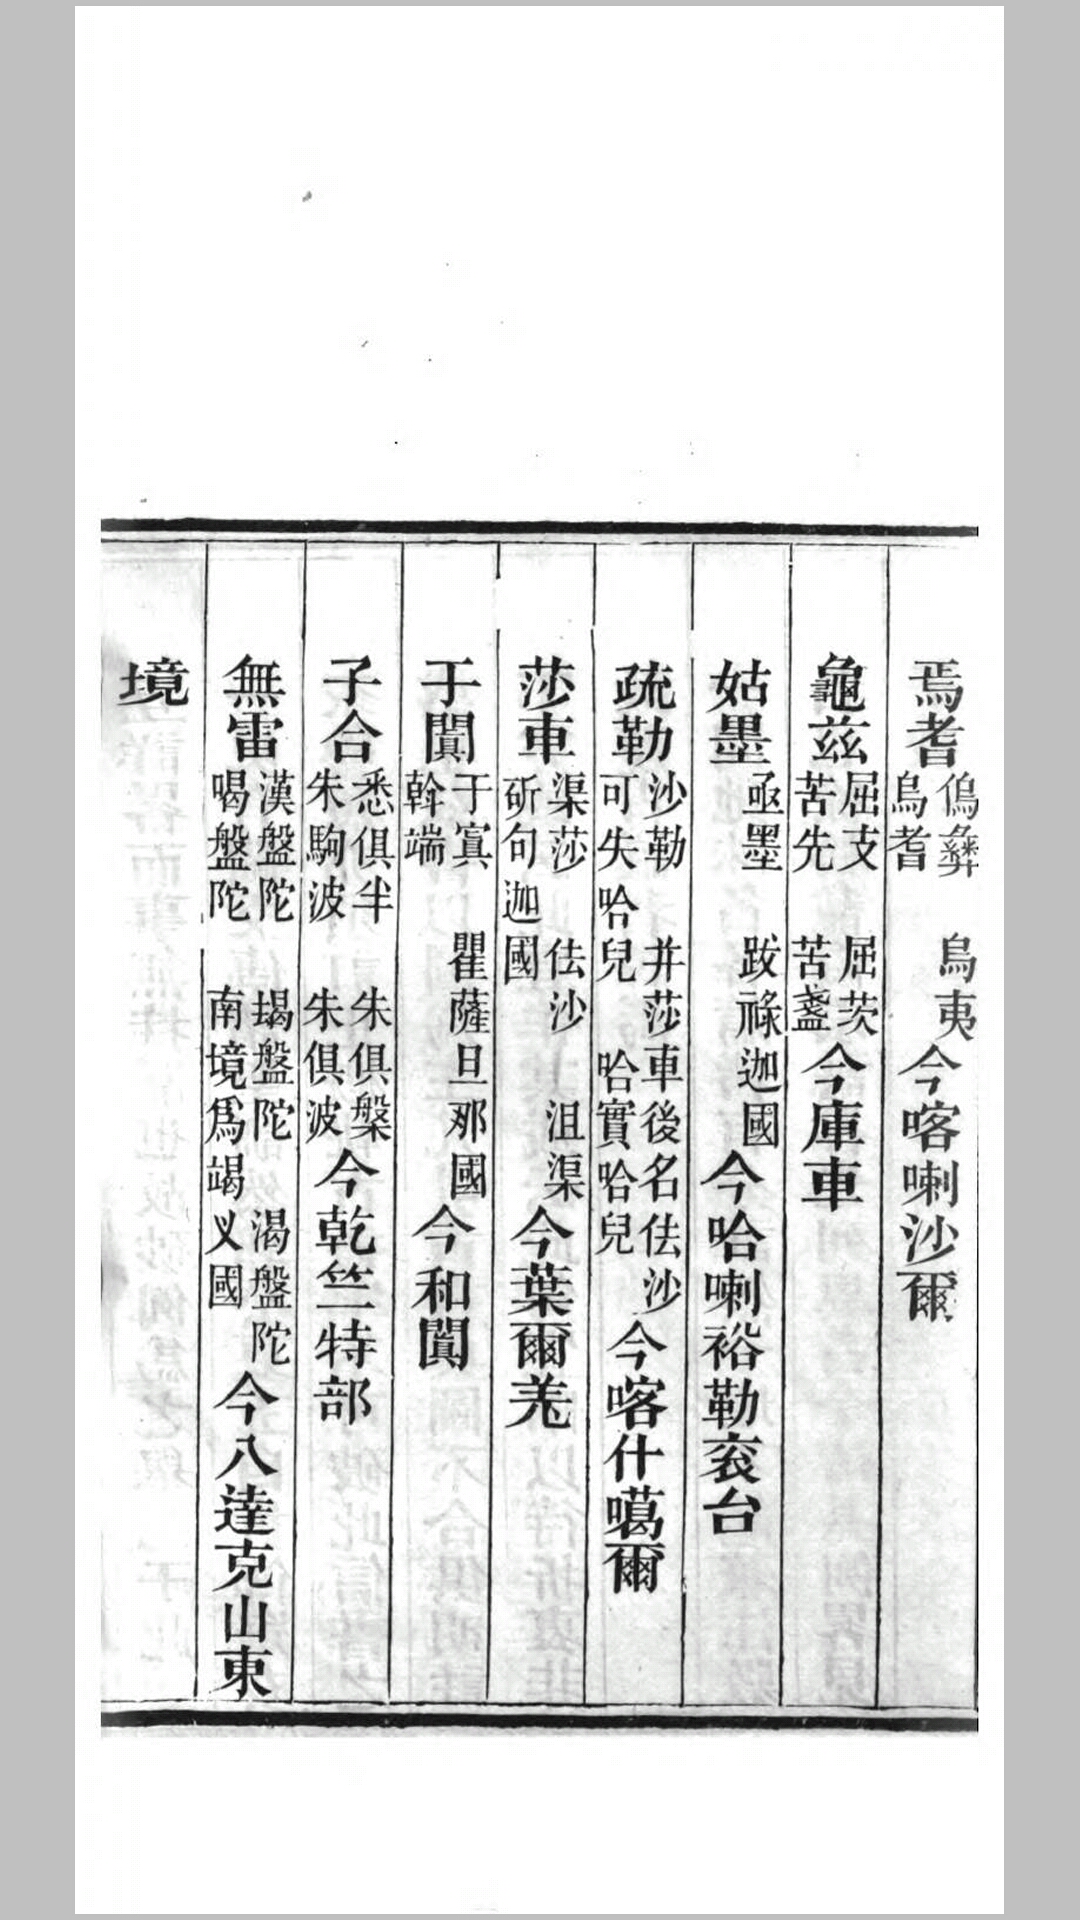 焉耆 傴彝 烏夷 烏耆 今喀喇沙爾
龜茲 屈支 屈茨 苦先 苦盞 今庫車
姑墨 亟墨 跋祿迦國 今哈喇裕勒衮台
疏勒 沙勒 并莎車後名佉沙 可失哈兒 哈實哈兒 今喀什噶爾
莎車 渠莎 佉沙 沮渠 斫句迦國 今葉爾羌
于闐 于寘 瞿薩旦那國 斡端 今和闐
子合 悉俱半 朱俱槃 朱駒波 朱俱波 今乾竺特部
無雷 漢盤陀 朅盤陀 渴盤陀 喝盤陀 南境為竭叉國 今八達克山東
境